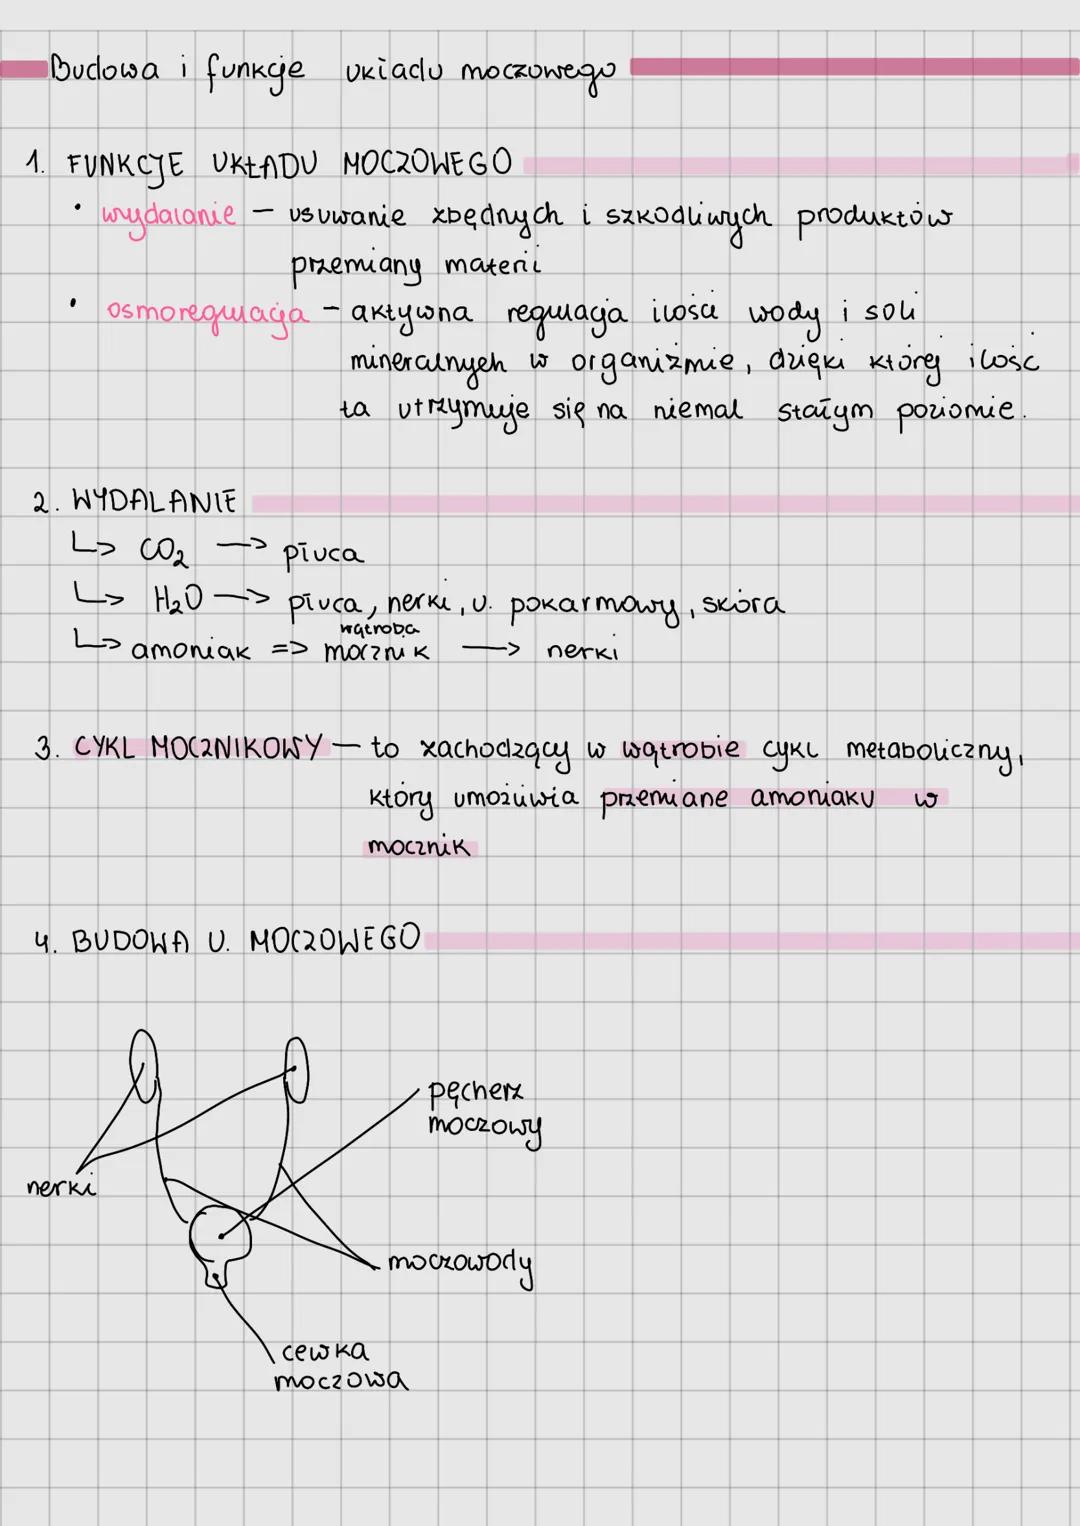 Budowa i funkcje układu moczowego
1. FUNKCJE UKŁADU MOCZOWEGO
• wydalanie – usuwanie zbędnych i szkodliwych produktów
przemiany materii
• osmoregulacja – aktywna regulacja ilości wody i soli
mineralnych w organiżmie, dzięki której ilość
ta utrzymuje się na niemal stałym poziomie.
2. WYDALANIE
↳ CO₂ → płuca
↳ H₂O → płuca, nerki, u. pokarmowy, skóra
wątroba
↳ amoniak => mocznik → nerki
3. CYKL MOCZNIKOWY – to zachodzący w wątrobie cykl metaboliczny,
który umożliwia przemiane amoniaku w
mocznik
4. BUDOWA U. MOCZOWEGO
pęcherz
moczowy
nerki
moczowody
cewka
moczowa